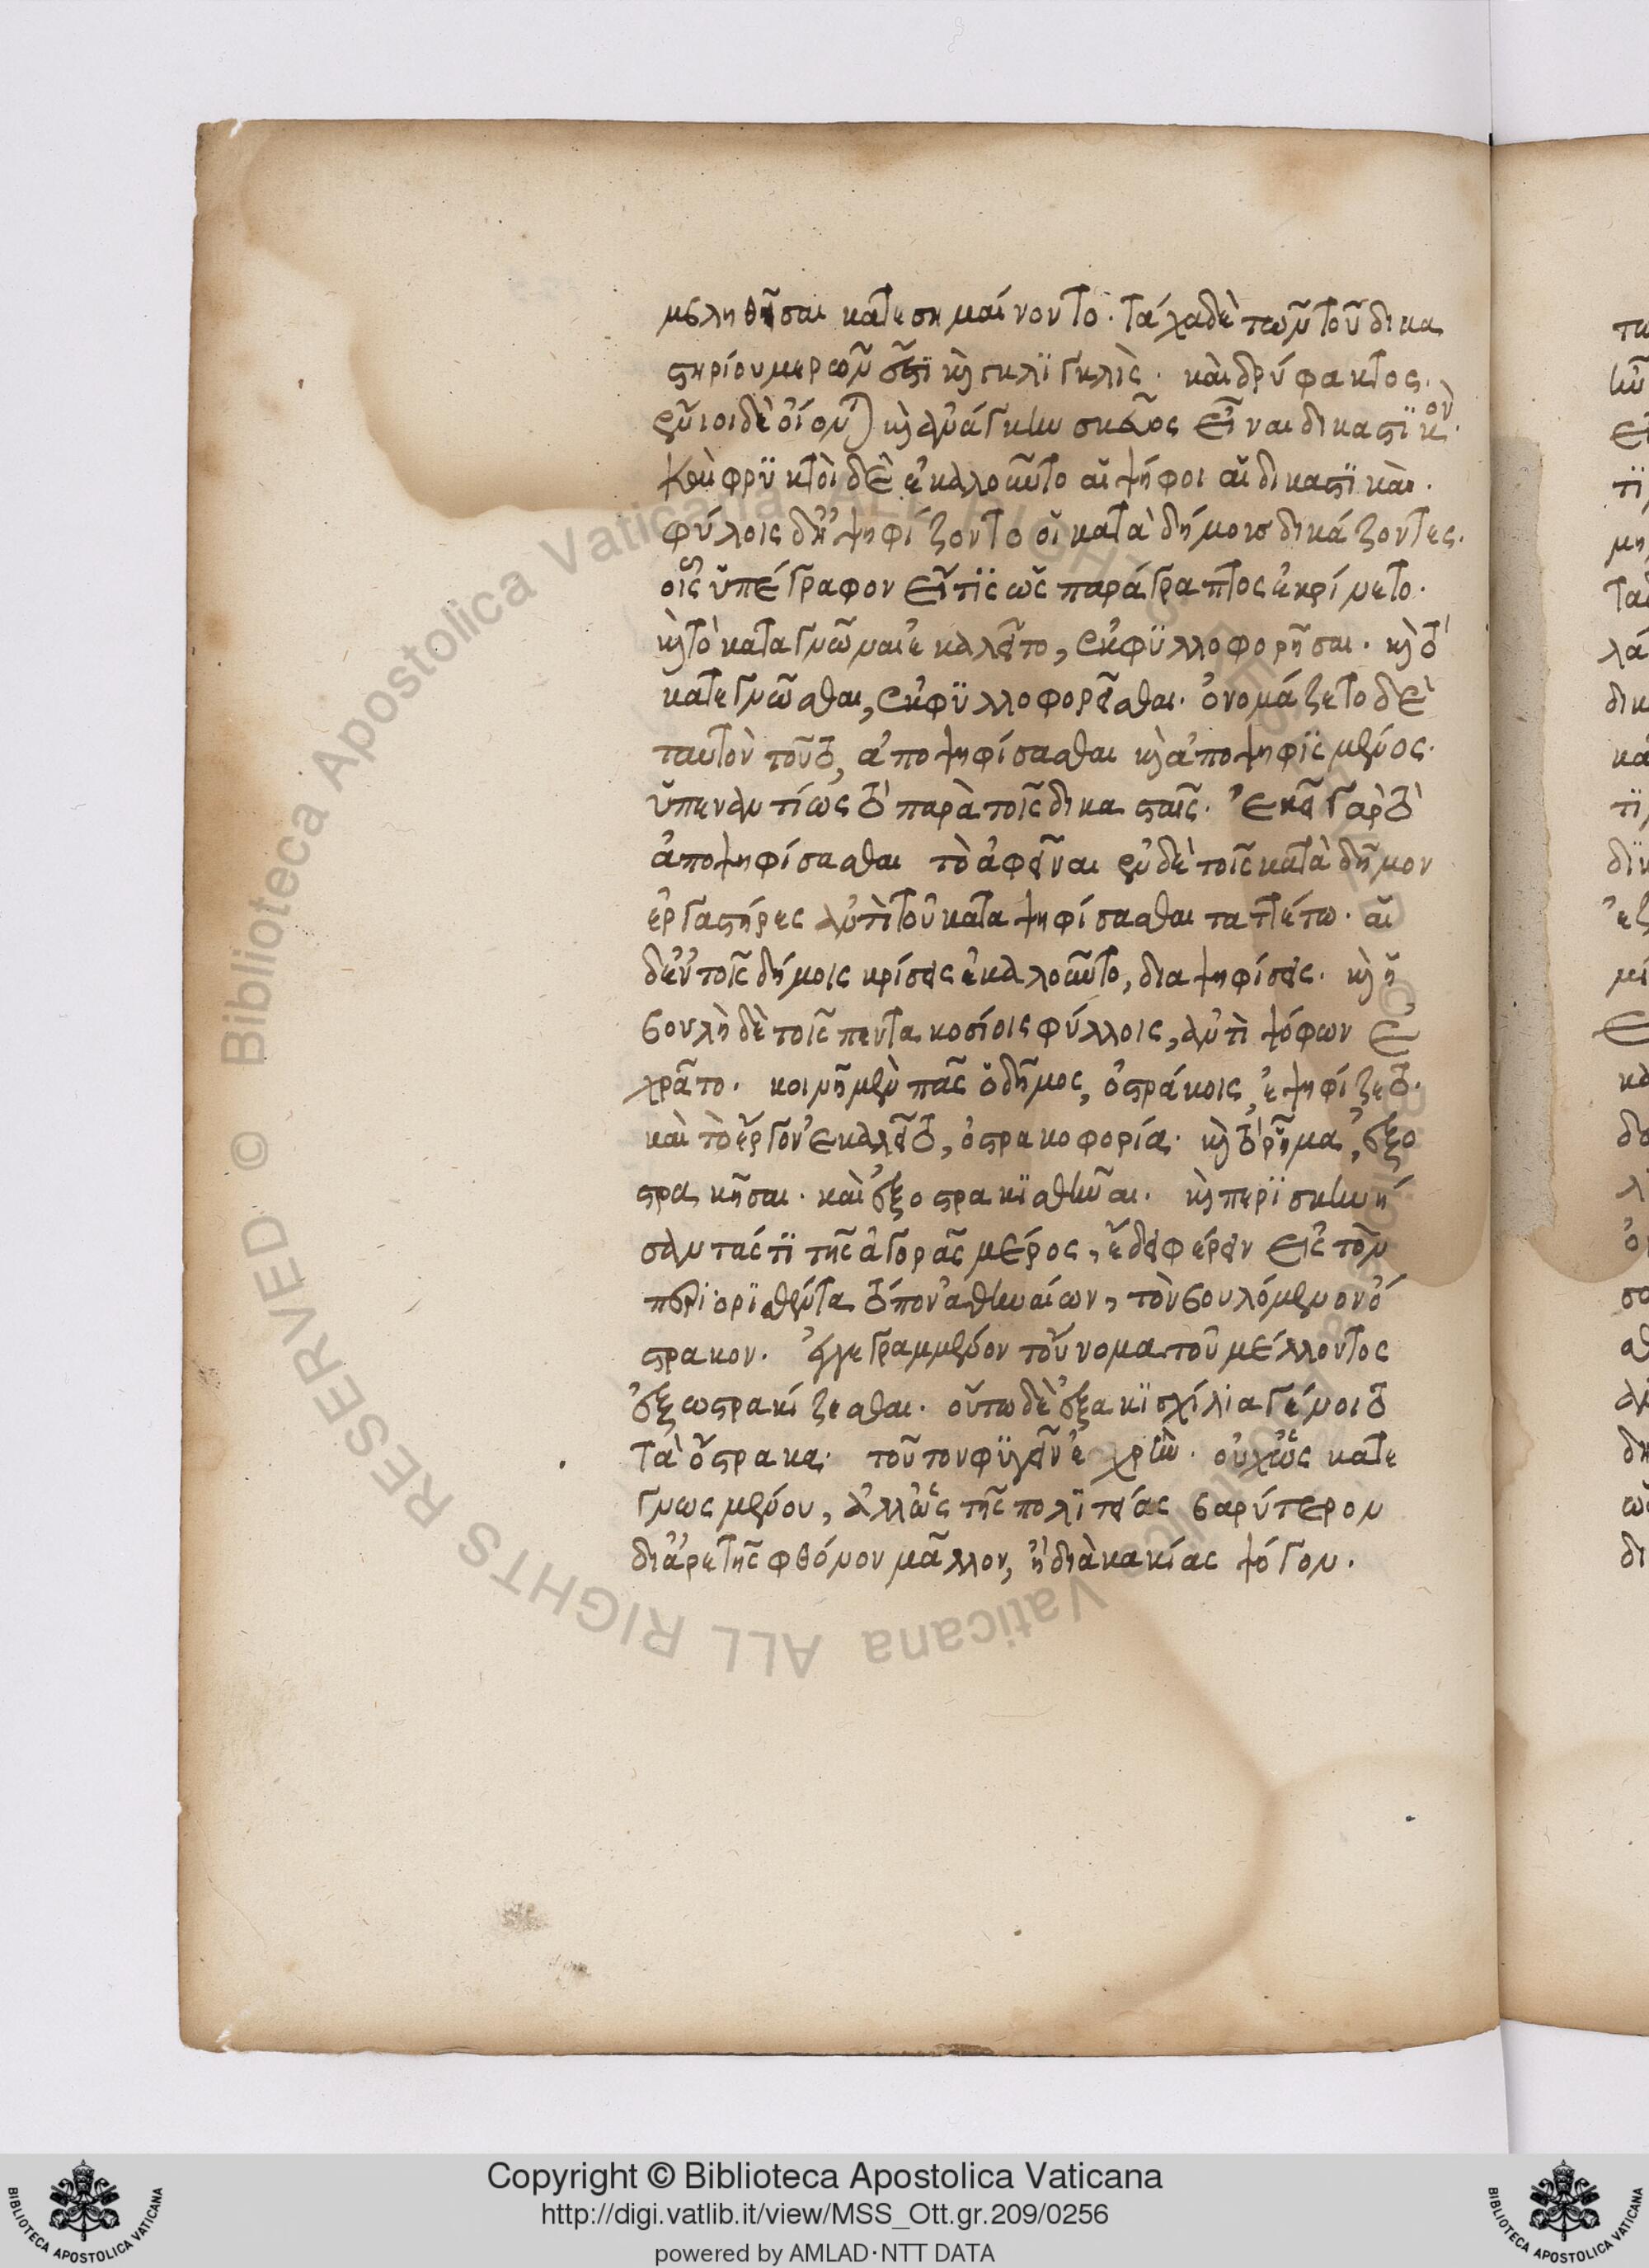 μεληθῆσαι κατεσημαίνοντο. τάχα δὲ τῶν τοῦ δικα
στηρίου μερῶν ἐστὶ κὴ κιγκλὶς. καὶ δρύφακτος.
ἔνιοι δὲ οἴονται κὴ ἀνάγκην σκεῦος εἶναι δικαστικὸν.
καὶ φρυκτοὶ δὲ ἐκαλοῦντο αἱ ψήφοι αἱ δικαστικὰι.
φύλοις δ' ἐψηφίζοντο οἱ κατὰ δήμους δικάζοντες.
οἷς ὑπέγραφον εἴ τις ὡς παράγραπτος ἐκρίνετο.
κὴ τὸ καταγνῶναι ἐκαλεῖτο, ἐκφυλλοφορῆσαι. κὴ τὸ
κατεγνῶσθαι, ἐκφυλλοφορεῖσθαι. ὀνομάζετο δὲ
ταυτὸν τοῦτο, ἀποψηφίσασθαι κὴ ἀποψηφισμένος.
ὑπεναντίως τὸ παρὰ τοῖς δικασταῖς. ἐκεῖ γὰρ τὸ
ἀποψηφίσασθαι τὸ ἀφεῖναι ἐν δὲ τοῖς κατὰ δῆμον
ἐργαστήρες ἀντὶ τοῦ καταψηφίσασθαι ταττέτω. αἱ
δ' ἐν τοῖς δήμοις κρίσεις ἐκαλοῦντο, διαψηφίσεις. κὴ ἡ
βουλὴ δὲ τοῖς πεντακοσίοις φύλλοις, ἀντὶ ψόφων ἐ
χρᾶτο. κοινῆ μὲν πᾶς ὁ δῆμος, ὀστράκοις, ἐψηφίζετο.
καὶ τὸ ἔργον ἐκαλεῖτο, ὀστρακοφορία. κὴ τὸ ρῆμα, ἐξο
στρακῆσαι. καὶ ἐξοστρακισθῆναι. κὴ περισκηνή
σαντάς τι τῆς ἀγορᾶς μέρος, ἔδει φέρειν εἰς τὸν
περιορισθέντα τόπον ἀθηναίων, τὸν βουλόμενον ὄ
στρακον. ἐγγεγραμμένον τοὔνομα τοῦ μέλλοντος
ἐξωστρακίζεσθαι. οὕτω δὲ ἐξακισχίλια γένοιτο
τὰ ὄστρακα. τοῦτον φυγεῖν ἐχρῆν. οὐχ ὡς κατε
γνωσμένου, ἀλλ' ὡς τῆς πολιτείας βαρύτερον
δι' ἀρετῆς φθόνον μᾶλλον, ἢ διὰ κακίας ψόγον.
Copyright © Biblioteca Apostolica Vaticana
http://digi.vatlib.it/view/MSS_Ott.gr.209/0256
powered by AMLAD·NTT DATA